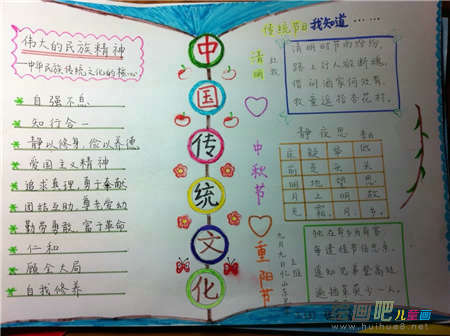 伟大的民族精神
——中华民族传统文化的核心
自强不息
知行合一
静以修身,俭以养德
爱国主义精神
追求真理,勇于奉献
团结互助,尊老爱幼
勤劳勇敢,富于革命
仁和
顾全大局
自我修养
中
国
传
统
文
化
传统节日我知道……
清明
杜牧
清明时节雨纷纷,
路上行人欲断魂。
借问酒家何处有,
牧童遥指杏花村。
中秋节
静夜思
床疑举低
前是头头
明地望思
月上明故
光霜月乡
重阳节
九月九日忆山东兄弟
王维
独在异乡为异客,
每逢佳节倍思亲。
遥知兄弟登高处,
遍插茱萸少一人。
绘画吧 儿童画
www.huihua8.net